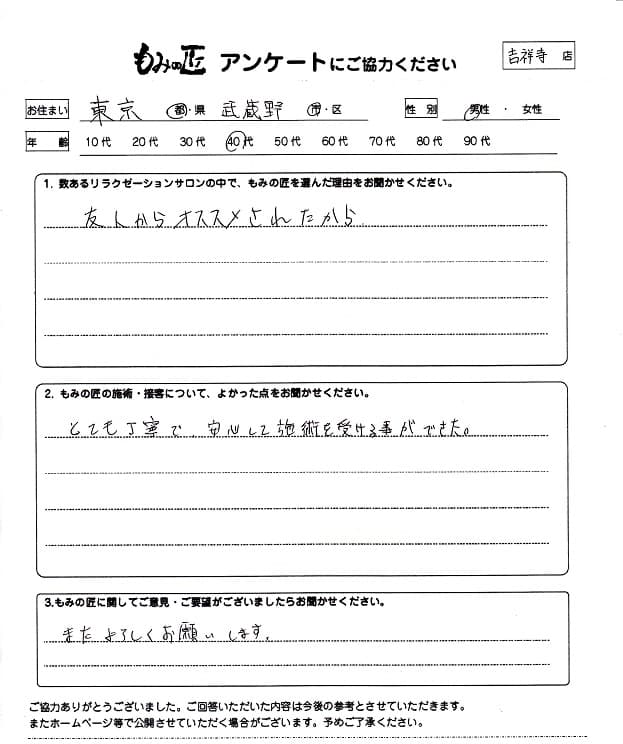 もみの匠 アンケートにご協力ください 吉祥寺 店
お住まい 東京 都・県 武蔵野 市・区 性別 男性 ・ 女性
年齢 10代 20代 30代 40代 50代 60代 70代 80代 90代
1. 数あるリラクゼーションサロンの中で、もみの匠を選んだ理由をお聞かせください。
友人からオススメされたから
2. もみの匠の施術・接客について、よかった点をお聞かせください。
とても丁寧で、安心して施術を受ける事ができた。
3.もみの匠に関してご意見・ご要望がございましたらお聞かせください。
またよろしくお願いします。
ご協力ありがとうございました。ご回答いただいた内容は今後の参考とさせていただきます。
またホームページ等で公開させていただく場合がございます。予めご了承ください。